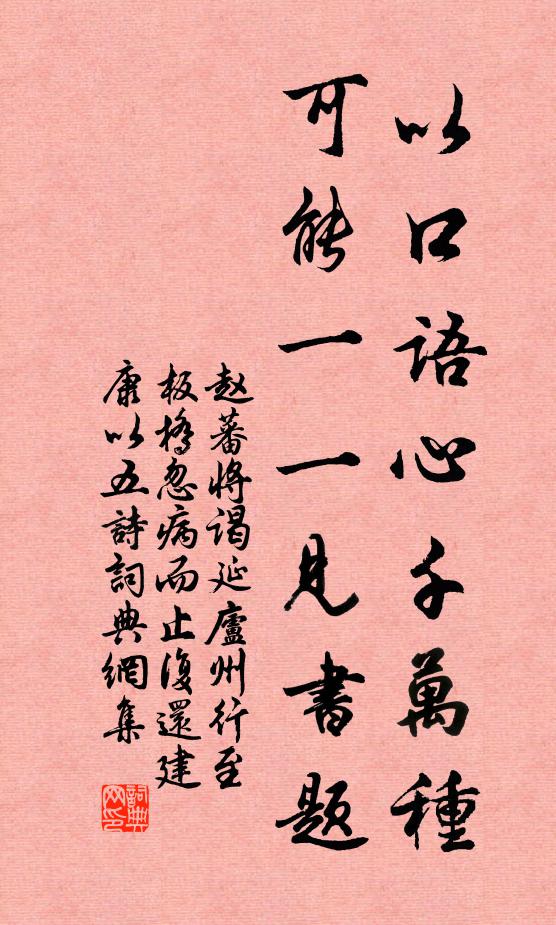 以口語心千萬種
可能一一見書題
赵蕃将谒延廬州行至
板橋忽病而止復還建
康以五詩詞典網集
詞典网印